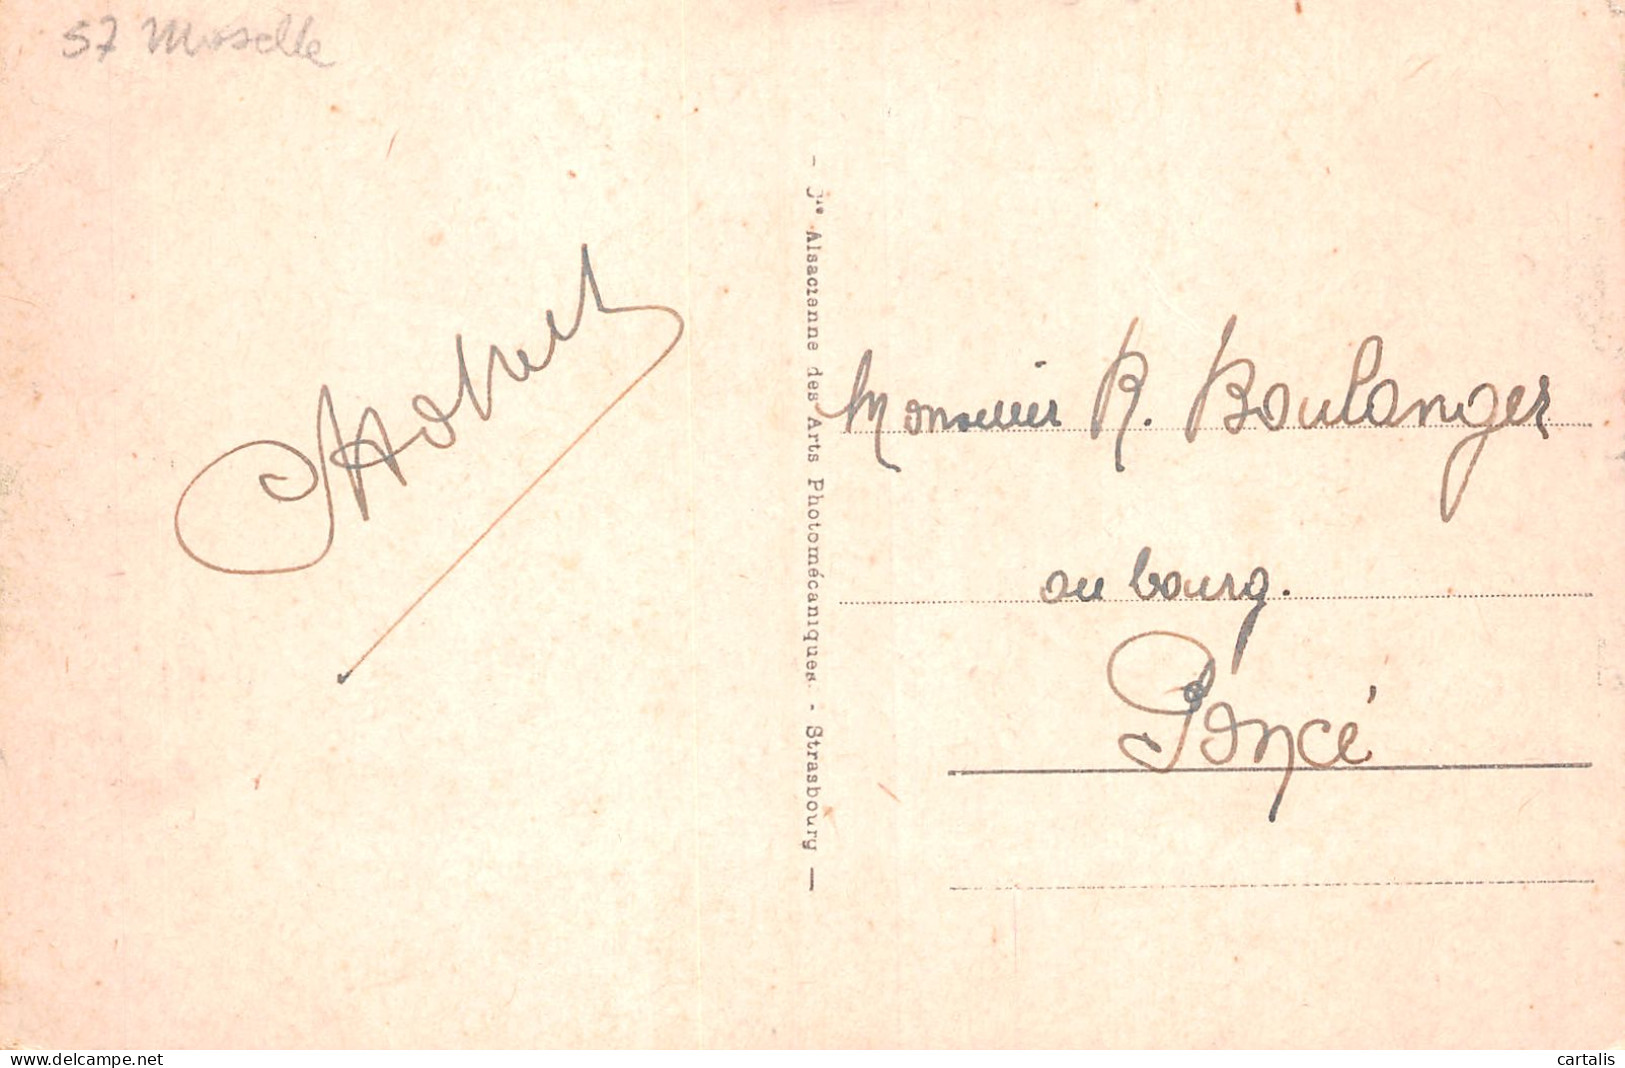 57 Moselle
- Jie Alsacienne des Arts Photomécaniques. - Strasbourg —
Monsieur R. Boulanger
au bourg.
Poncé
delcampe.net
cartalis